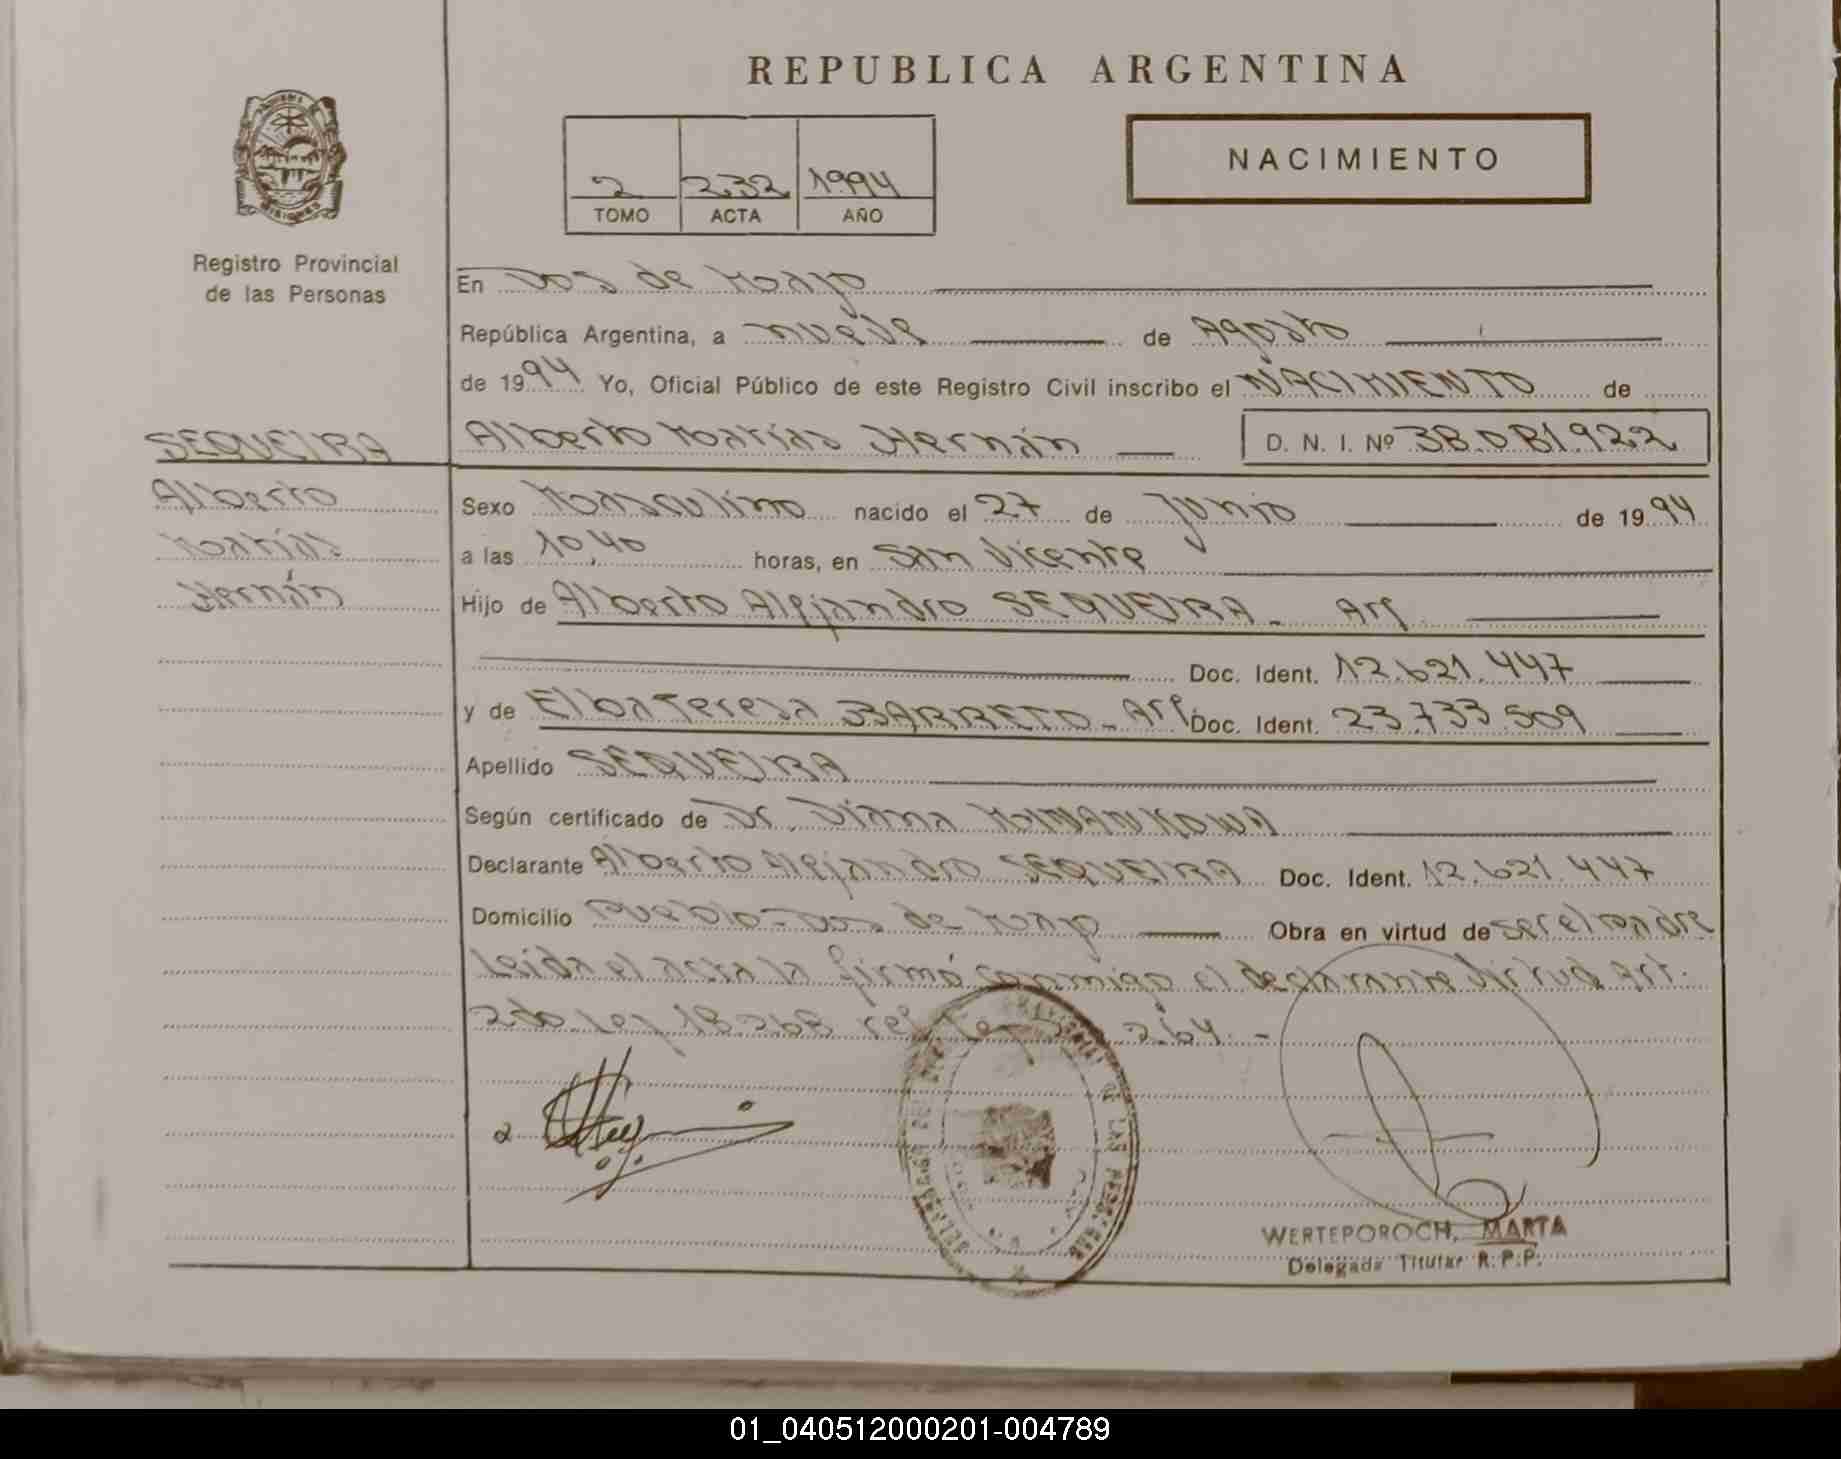 REPUBLICA ARGENTINA
NACIMIENTO
2 232 1994
TOMO ACTA AÑO
MISIONES
Registro Provincial
de las Personas
En Dos de Mayo
República Argentina, a nueve de Agosto
de 1994 Yo, Oficial Público de este Registro Civil inscribo el NACIMIENTO de
SEQUEIRA
Alberto Matías Hernán D. N. I. Nº 38.081.922
Alberto
Matías
Hernán
Sexo Masculino nacido el 27 de Junio de 1994
a las 10,40 horas, en San Vicente
Hijo de Alberto Alejandro SEQUEIRA - Arg
Doc. Ident. 12.621.447
y de Elba Teresa BARRETO - Arg. Doc. Ident. 23.733.509
Apellido SEQUEIRA
Según certificado de Dr. Diana
Declarante Alberto Alejandro SEQUEIRA Doc. Ident. 12.621.447
Domicilio Pueblo - Dos de Mayo Obra en virtud de ser el padre
Leída el acta la firmó conmigo el declarante Virtud Art.
2do Ley 18.268 264.-
WERTEPOROCH, MARTA
Delegada Titular R.P.P.
01_040512000201-004789